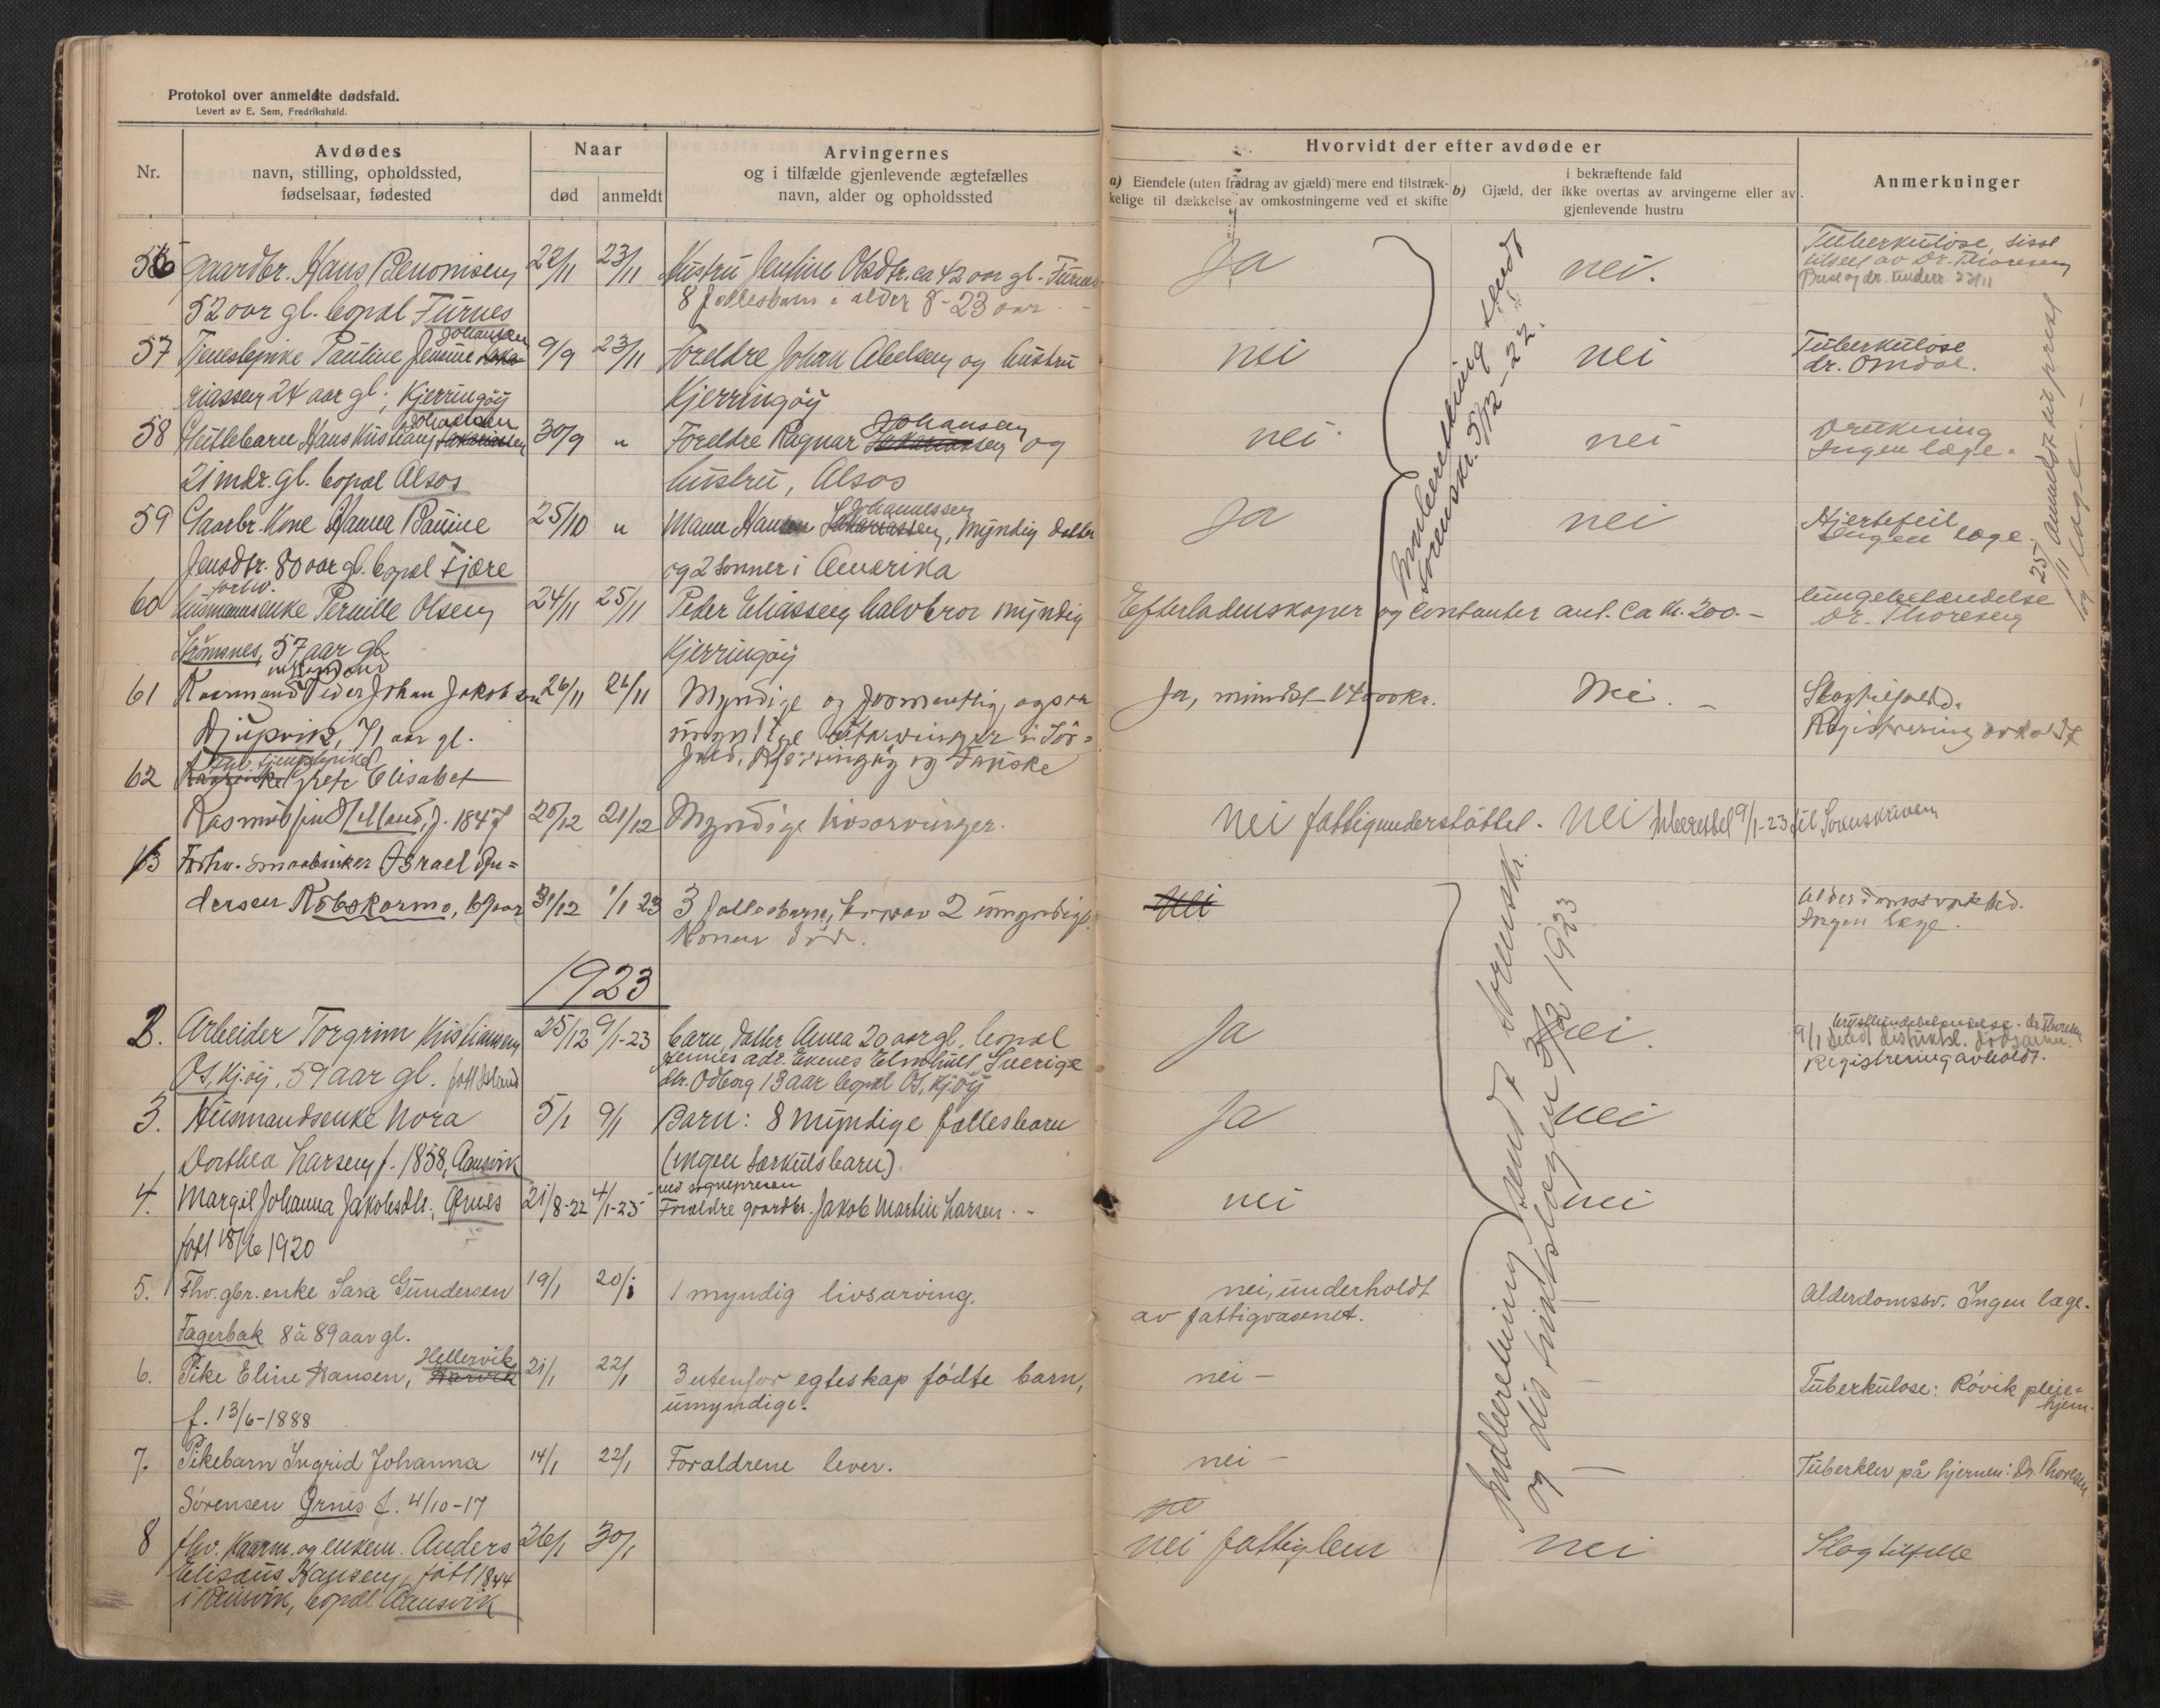 Protokol over anmeldte dødsfald.
Levert av E. Sem, Fredrikshald.
Nr.
Avdødes
navn, stilling, opholdssted,
fødselsaar, fødested
Naar
død
anmeldt
Arvingernes
og i tilfælde gjenlevende ægtefælles
navn, alder og opholdssted
Hvorvidt der efter avdøde er
a) Eiendele (uten fradrag av gjæld) mere end tilstræk-
kelige til dækkelse av omkostningerne ved et skifte
i bekræftende fald
b) Gjæld, der ikke overtas av arvingerne eller av
gjenlevende hustru
Anmerkninger
56 Gaardbr. Hans Benonisen 22/11 23/11 Hustru Jentine Olsdtr. ca 42 aar gl. Furnes Ja nei. Tuberkulose, sisst
52 aar gl. bopæl Furnes 8 fællesbarn i alder 8-23 aar tilseet av Dr. Thoresen
Prest og dr. underr. 23/11
57 Tjenestepike Pauline Jensine Johansen 9/9 23/11 Foreldre Johan Abelsen og hustru nei nei Tuberkulose
riassen 24 aar gl., Kjerringøy Kjerringøy dr. Omdal.
58 Guttebarn Hans Kristian Johansen 30/9 " Foreldre Ragnar Johansen og nei nei Drukning
21 mdr. gl. bopæl Alsos hustru, Alsos Ingen læge.
59 Gaarbr. Kone Hanna Bauine 25/10 " Mann Hans Johannessen, myndig datter Ja nei Hjertefeil
Jensdtr. 80 aar gl. bopæl Fjære og 2 sønner i Amerika Ingen læge
60 forhv. husmannsenke Pernille Olsen 24/11 25/11 Peder Eliassen halvbror myndig Efterladenskaper og contanter ant. ca kr. 200.- lungebetændelse
Strømsnes, 57 aar gl. Kjerringøy Dr. Thoresen
Innberettning sendt
Sorenskr. 5/12-22.
25/11 anmeldt til prest
og læge.-
61 Kaarmand Peder Johan Jakobsen 26/11 26/11 Myndige og formentlig ogsaa Ja, mindst 14000 kr. Nei. - Slagtilfæld.
Djupvik, 71 aar gl. umyndige utarvinger i Sør- Registrering avholdt
fold, Kjerringøy og Fauske
62 Grete Elisabet
Rasmussen Helland, f. 1847 20/12 21/12 Myndige livsarvinger. nei fattigunderstøttet. nei Inberettet 9/1-23 til Sorenskriveren
63 Forhv. smaabruker Israel An-
dersen Røbskarmo, 69 aar 31/12 1/1 23 3 fællesbarn, hvorav 2 umyndige. Nei Alderdomssvakhed.
Konen død. Ingen læge.
1923
2. Arbeider Torgrim Kristiansen 25/12 9/1-23 barn, datter Anna 20 aar gl. bopæl Ja nei. brysthindebetændelse. dr. Thoresen
Os, Kj.øy, 59 aar gl. født Island hennes adr. Ekenes Elmhult, Sverige 9/1
dtr. Odborg 13 aar bopæl Os, Kj.øy Registrering avholdt.
3. Husmandsenke Nora 5/1 9/1 Barn: 8 myndige fællesbarn Ja nei
Dorthea Larsen f. 1858, Aansvik (ingen særkulsbarn)
4. Margit Johanna Jakobsdtr., Ørnes 21/8-22 4/1-23 Foreldre gaardbr. Jakob Martin Larsen.- nei nei
født 18/6 1920
5. Fhv. gbr. enke Sara Gundersen 19/1 20/1 1 myndig livsarving. nei, underholdt — Alderdomssv. Ingen læge.
Fagerbak 8 à 89 aar gl. av fattigvæsenet.
6. Pike Eline Hansen, Hellervik 21/1 22/1 3 utenfor egteskap fødte barn, nei — — Tuberkulose: Røvik pleie-
f. 13/6-1888 umyndige. hjem.
7. Pikebarn Ingrid Johanna 14/1 22/1 Forældrene lever. nei — — Tuberkler på hjernen: Dr. Thoresen.
Sörensen Ørnes f. 4/10-17
8 fhv. Kaarm. og enkem. Anders 26/1 30/1 nei fattiglem nei Slagtilfelle
Elisæus Hansen, født 1844
i , bopæl Aansvik
Indberettning sendt Sorenskr.
og distriktslægen 3/2 1923